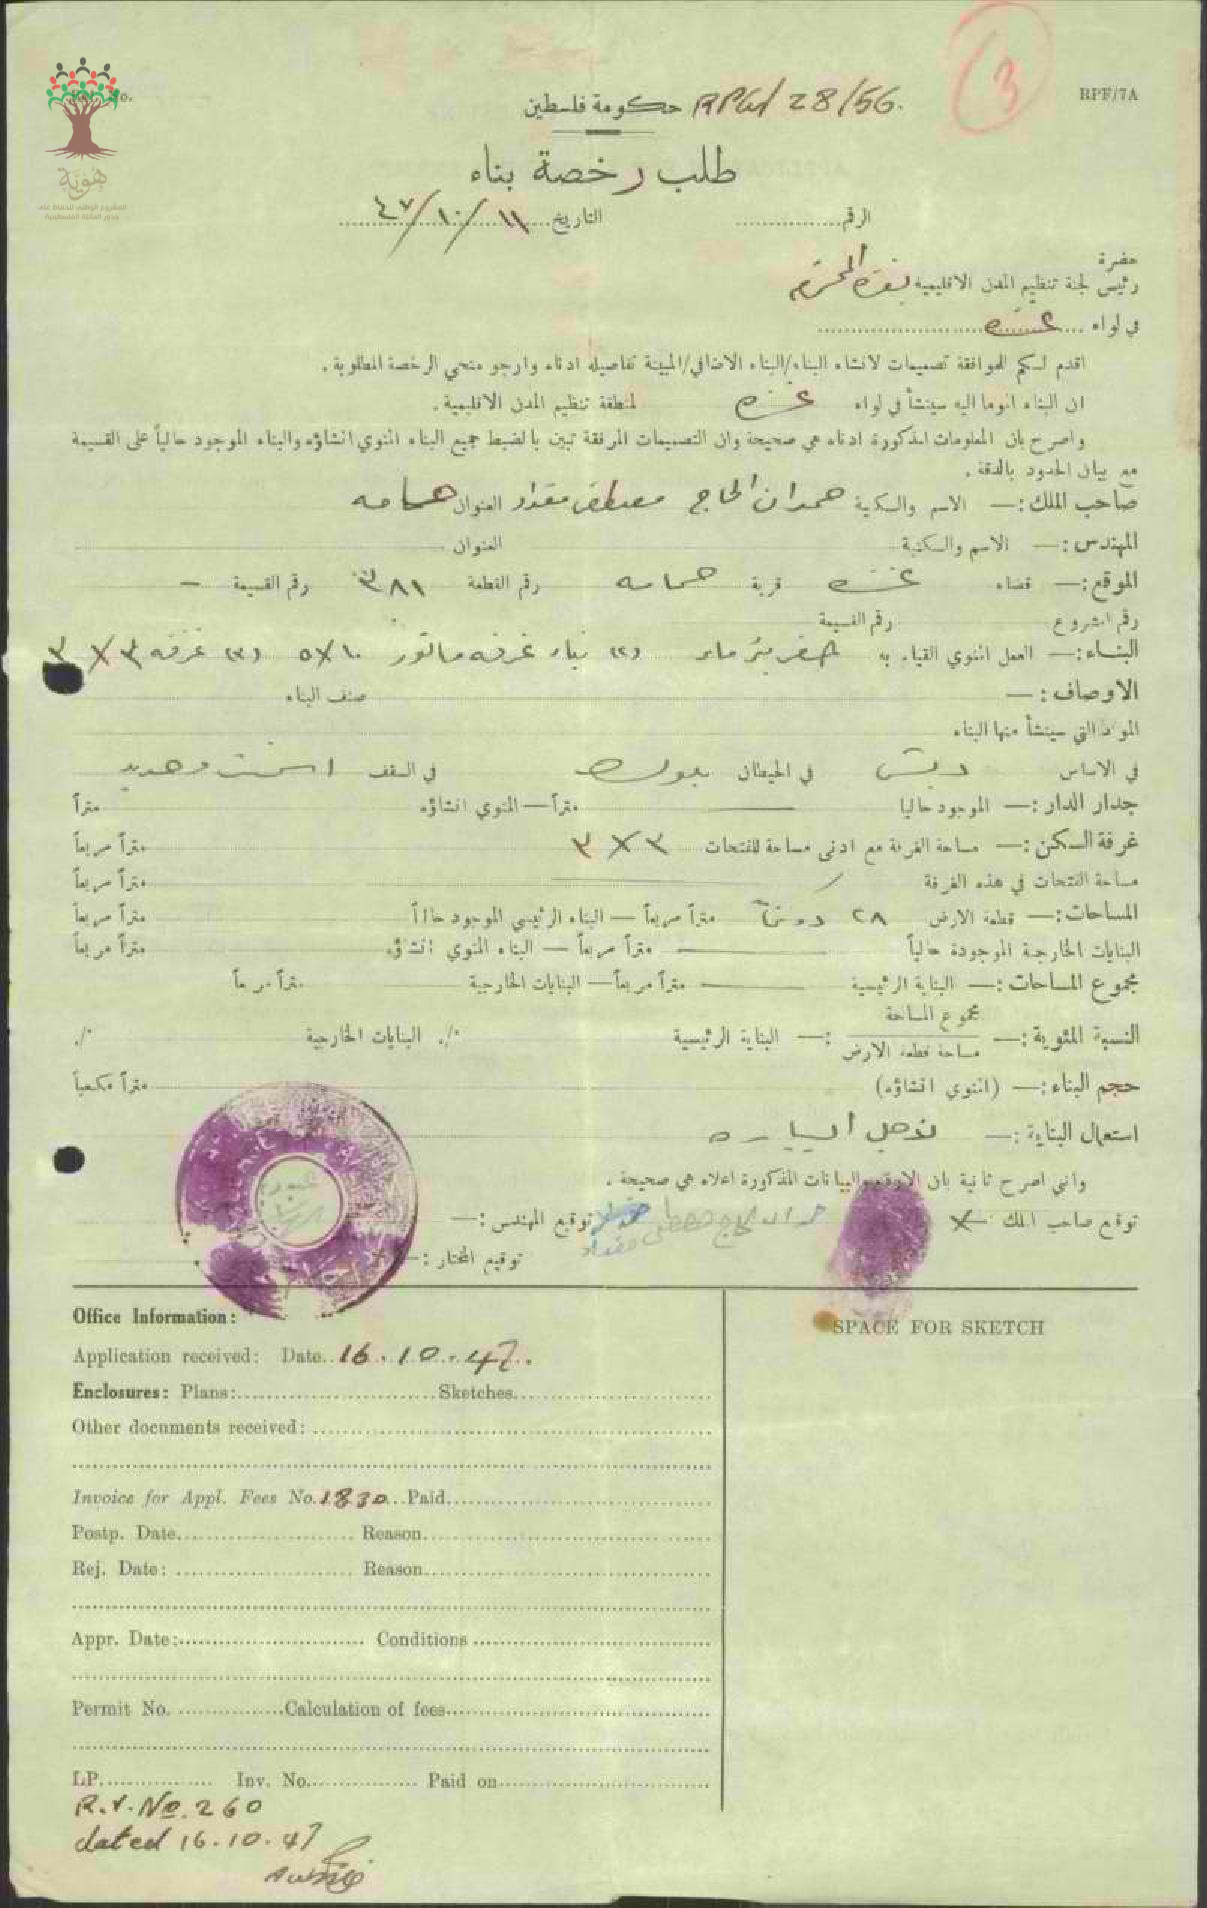 RPF/7A
3
حكومة فلسطين RPG/28/56.
هوية
المشروع الوطني للحفاظ على
جذور العائلة الفلسطينية
طلب رخصة بناء
الرقم التاريخ ١١/١٠/٤٧
حضرة
رئيس لجنة تنظيم المدن الاقليمية بغزه المحترم
في لواء غزه
اقدم لكم للموافقة تصميمات لانشاء البناء/البناء الاضافي/المبينة تفاصيله ادناه وارجو منحي الرخصة المطلوبة .
ان البناء الموما اليه سينشأ في لواء غزه لمنطقة تنظيم المدن الاقليمية .
واصرح بان المعلومات المذكورة ادناه هي صحيحة وان التصميمات المرفقة تبين بالضبط جميع البناء المنوي انشاؤه والبناء الموجود حالياً على القسيمة
مع بيان الحدود بالدقة .
صاحب الملك :— الاسم والكنية حمدان الحاج مصطفى مقداد العنوان حمامه
المهندس :— الاسم والكنية العنوان
الموقع :— قضاء غزه قرية حمامه رقم القطعة ٣٨١ رقم القسيمة —
رقم المشروع رقم القسيمة
البناء :— العمل المنوي القيام به حفر بئر ماء (٢) بناء غرفه ماتور ١٠×٥ (٣) غرفه ٣×٣
الاوصاف :— صنف البناء
المواد التي سينشأ منها البناء
في الاساس دبش في الحيطان بلوك في السقف اسمنت وحديد
جدار الدار :— الموجود حاليا متراً — المنوي انشاؤه متراً
غرفة السكن :— مساحة الغرفة مع ادنى مساحة للفتحات ٣×٣ متراً مربعاً
مساحة الفتحات في هذه الغرفة متراً مربعاً
المساحات :— قطعة الارض ٢٨ دونم متراً مربعاً — البناء الرئيسي الموجود حالاً متراً مربعاً
البنايات الخارجية الموجودة حالياً متراً مربعاً — البناء المنوي انشاؤه متراً مربعاً
مجموع المساحات :— البناية الرئيسية متراً مربعاً — البنايات الخارجية متراً مربعاً
النسبة المئوية :— مجموع المساحة / مساحة قطعة الارض :— البناية الرئيسية ٠/٠ البنايات الخارجية ٠/٠
حجم البناء :— (المنوي انشاؤه) متراً مكعباً
استعمال البناية :— لاجل البياره
واني اصرح ثانية بان الارقام والبيانات المذكورة اعلاه هي صحيحة .
توقيع صاحب الملك حمدان الحاج مصطفى مقداد توقيع المهندس :—
توقيع المختار :—
Office Information:
Application received: Date 16.10.47.
Enclosures: Plans: Sketches
Other documents received:
Invoice for Appl. Fees No. 1830 Paid
Postp. Date Reason
Rej. Date: Reason
Appr. Date: Conditions
Permit No. Calculation of fees
LP. Inv. No. Paid on
R.V. No. 260
dated 16.10.47
SPACE FOR SKETCH